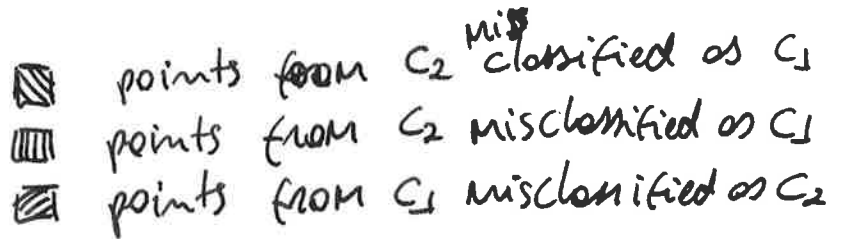 points from C2 misclassified as C1
points from C2 misclassified as C1
points from C1 misclassified as C2